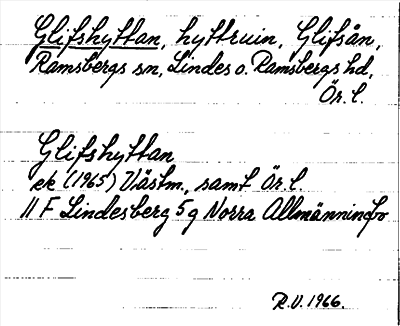 Glifshyttan, hyttruin, Glifsån,
Ramsbergs sn, Lindes o. Ramsbergs hd,
Ör. l.
Glifshyttan
ek (1965) Västm., samt Ör. l.
11 F Lindesberg 5 g Norra
R.V. 1966.